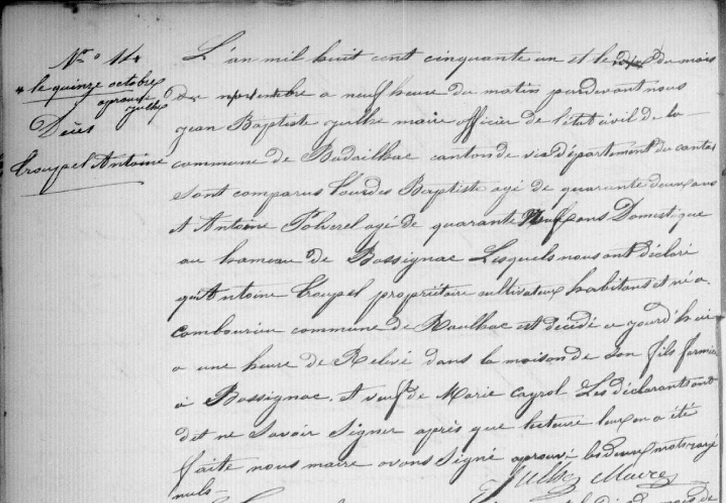 N.° 14
* le quinze octobre
aprouvé
Julhe
Décès
Croupel Antoine
L'an mil huit cent cinquante un et le du mois
de novembre a neuf heure du matin pardevant nous
jean Baptiste julhe maire officier de l'état civil de la
commune de Badailhac canton de vic département du cantal
sont comparus Lourdes Baptiste agé de quarante deux ans
et Antoine Polverel agé de quarante Neuf ans Domestique
au hameau de Bassignac Lesquels nous ont déclaré
qu'Antoine Croupel propriétaire cultivateur habitant et né a
combourieu commune de Raulhac est décédé ce jourd'hui
a une heure de Relevé dans la maison de son fils fermier
à Bassignac. et veuf de Marie Cayrol Les déclarants ont
dit ne Savoir Signer après que lecture leur en a été
faite nous maire avons Signé aprouvé les deux mots rayé
nuls
Julhe Maire